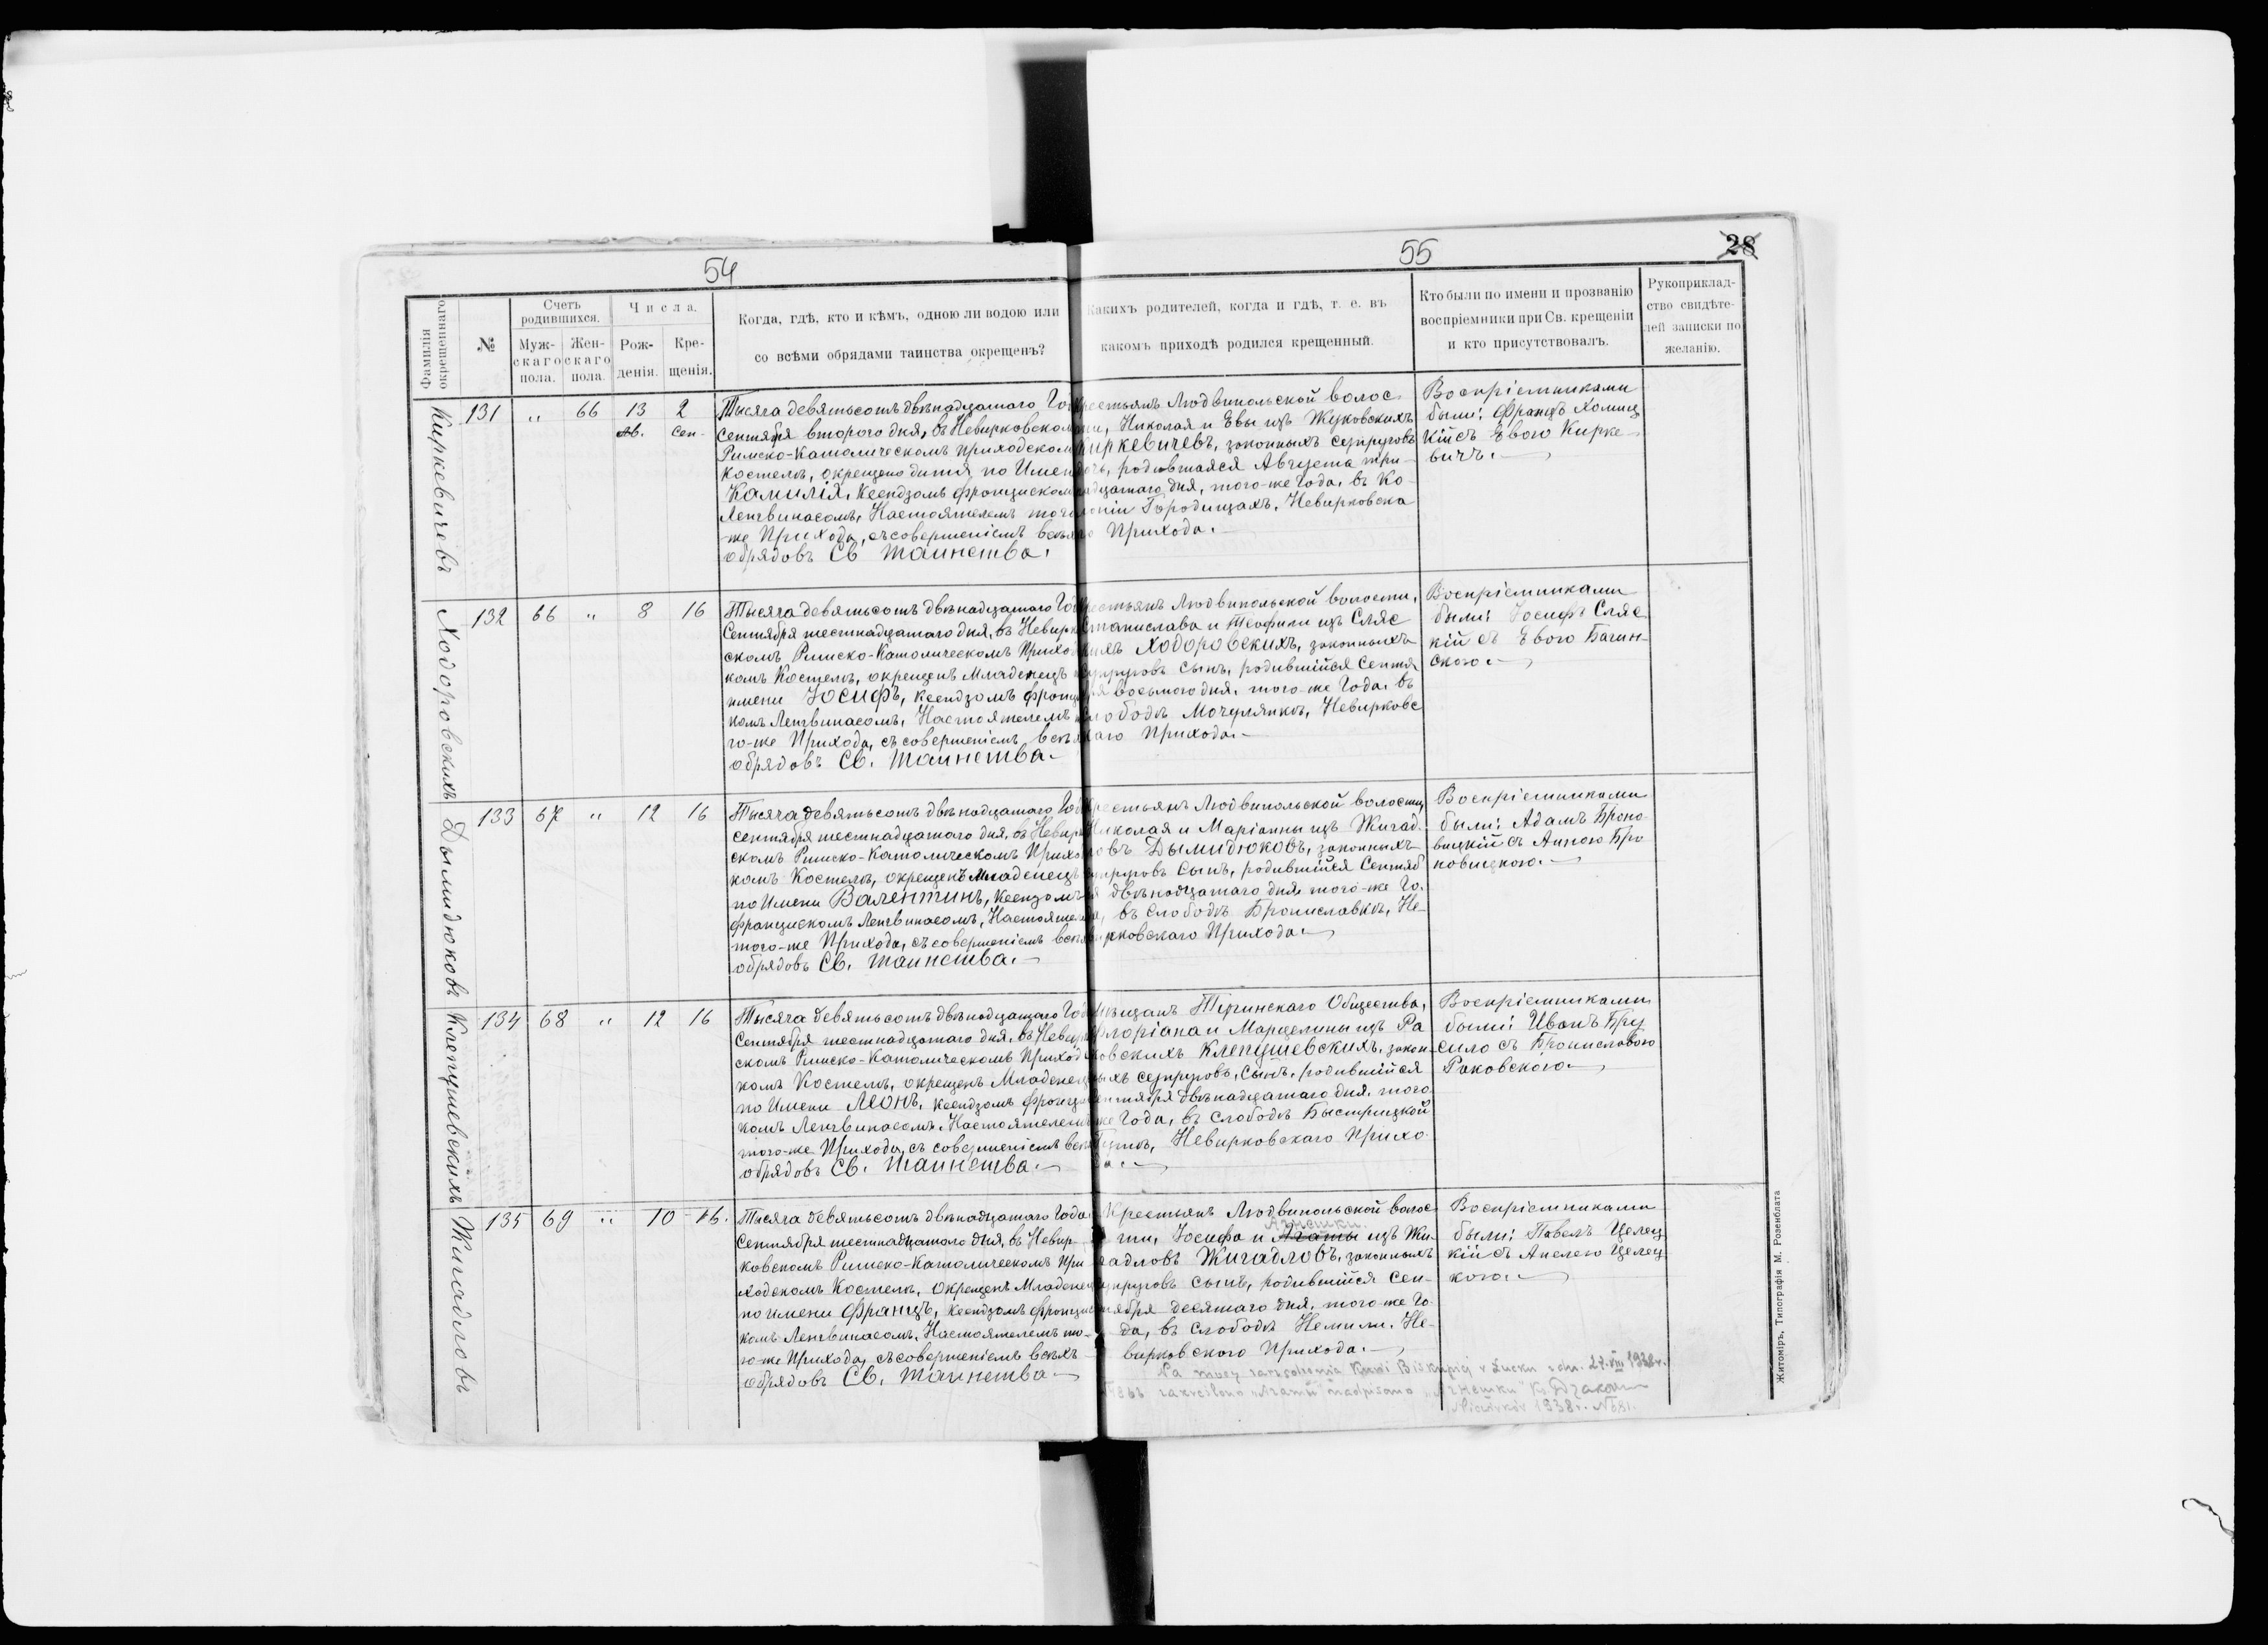 54
55
28
Фамилія окрещеннаго
№
Счетъ родившихся.
Муж-скаго пола.
Жен-скаго пола.
Числа.
Рож-денія.
Кре-щенія.
Когда, гдѣ, кто и кѣмъ, одною ли водою или
со всѣми обрядами таинства окрещенъ?
Какихъ родителей, когда и гдѣ, т. е. въ
какомъ приходѣ родился крещенный.
Кто были по имени и прозванію
воспріемники при Св. крещеніи
и кто присутствовалъ.
Рукоприклад-
ство свидѣте-
лей записки по
желанію.
Киркевичевъ
131 " 66 13 2
Ав. Сен.
Тысяча девятьсотъ двѣнадцатаго Го
Сентября второго дня, въ Невирковском
Римско-Католическомъ приходском
Костелѣ, окрещено дитя по Имен
Камилія, Ксендзомъ Францискомъ
Ленгвинасомъ, Настоятелемъ того
же Прихода, съ совершеніемъ всѣх
обрядовъ Св Таинства.
Крестьянъ Людвипольской волос
ти, Николая и Евы изъ Жуковскихъ
Киркевичевъ, законныхъ супруговъ
дочь, родившаяся Августа три-
надцатаго дня, того-же Года, въ Ко-
лоніи Городищахъ, Невирковска
го Прихода.
Воспріемниками
были: Францъ Холмиц
кій съ Евою Кирке-
вичъ.
Ходоровскихъ
132 66 " 8 16
Тысяча девятьсотъ двѣнадцатаго Год
Сентября шестнадцатаго дня, въ Невирк
скомъ Римско-Католическомъ Приход
комъ Костелѣ, окрещенъ Младенецъ
имени Іосифъ, Ксендзомъ Франц
комъ Ленгвинасомъ, Настоятелемъ
го-же Прихода, съ совершеніемъ всѣх
обрядовъ Св. Таинства.
Крестьянъ Людвипольской волости,
Станислава и Теофили изъ Сляс
кихъ Ходоровскихъ, законныхъ
супруговъ сынъ, родившійся Сентя
бря восьмого дня, того-же Года, въ
Слободѣ Мочулянкѣ, Невирковс
каго Прихода.
Воспріемниками
были: Іосифъ Сляс
кій съ Евою Багин-
скою.
Дымидюковъ
133 67 " 12 16
Тысяча девятьсотъ двѣнадцатаго Год
Сентября шестнадцатаго дня, въ Невирк
скомъ Римско-Католическомъ Прихо
комъ Костелѣ, окрещенъ Младенецъ
по Имени Валентинъ, Ксендзомъ
Францискомъ Ленгвинасомъ, Настояте
того-же Прихода, съ совершеніемъ всѣх
обрядовъ Св. Таинства.
Крестьянъ Людвипольской волости,
Николая и Маріанны изъ Жигад-
ловъ Дымидюковъ, законныхъ
супруговъ Сынъ, родившійся Сентяб
ря двѣнадцатаго дня того-же Го-
да, въ Слободѣ Брониславкѣ, Не-
вирковскаго Прихода.
Воспріемниками
были: Адамъ Броно-
вицкій съ Анною Бро
новицкою.
Клепушевскихъ
134 68 " 12 16
Тысяча девятьсотъ двѣнадцатаго Год
Сентября шестнадцатаго дня, въ Невирк
скомъ Римско-Католическомъ Приход
комъ Костелѣ, окрещенъ Младенец
по Имени Леонъ, Ксендзомъ Францис
комъ Ленгвинасомъ, Настоятелемъ
того-же Прихода, съ совершеніемъ всѣх
обрядовъ Св. Таинства.
Мѣщанъ Общества,
Флоріана и Марцелины изъ Ра
ковскихъ Клепушевскихъ, закон-
ныхъ супруговъ, Сынъ, родившійся
Сентября двѣнадцатаго дня, того
же Года, въ Слободѣ Быстрицкой
Гутѣ, Невирковскаго Прихо-
да.
Воспріемниками
были: Иванъ Бру
сило съ Брониславою
Раковскою.
Жигадловъ
135 69 " 10 16.
Тысяча девятьсотъ двѣнадцатаго Года
Сентября шестнадцатаго дня, въ Невир-
ковскомъ Римско-Католическомъ При
ходскомъ Костелѣ, Окрещенъ Младенец
по имени Францъ, Ксендзомъ Францис
комъ Ленгвинасомъ, Настоятелемъ то-
го-же Прихода, съ совершеніемъ всѣхъ
обрядовъ Св. Таинства.
Крестьянъ Людвипольской волос
Агнешки.
ти, Іосифа и Агаты изъ Жи-
гадловъ Жигадловъ, законныхъ
супруговъ сынъ, родившійся Сен-
тября десятаго дня, того-же Го-
да, въ Слободѣ Немили, Не-
вирковского Прихода.
Воспріемниками
были: Павелъ Целец
кій съ Анелею Целец
кою.
Na mocy Kurii Biskupiej w Łucku z dn. 27.VIII 1938 r.
zakreślono „Агаты" nadpisano „Агнешки" Ks.
1938 r.
Житоміръ, Типографія М. Розенблата